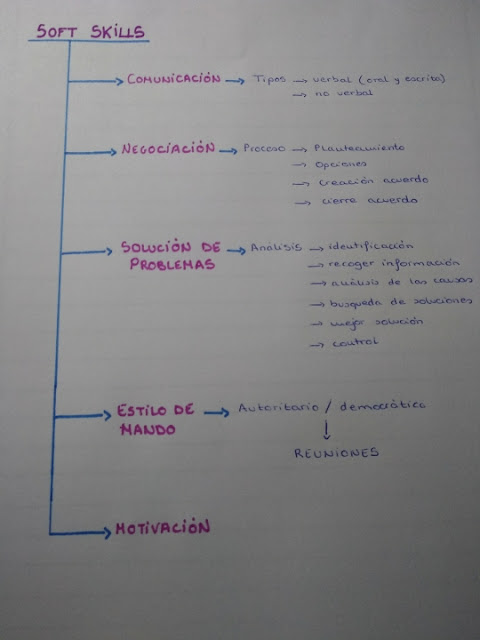 SOFT SKILLS
COMUNICACIÓN → Tipos → verbal (oral y escrita)
→ no verbal
NEGOCIACIÓN → Proceso → Planteamiento
→ Opciones
→ Creación acuerdo
→ cierre acuerdo
SOLUCIÓN DE → Análisis → identificación
PROBLEMAS
→ recoger información
→ análisis de las causas
→ busqueda de soluciones
→ mejor solución
→ control
ESTILO DE → Autoritario / democrático
MANDO
↓
REUNIONES
MOTIVACIÓN